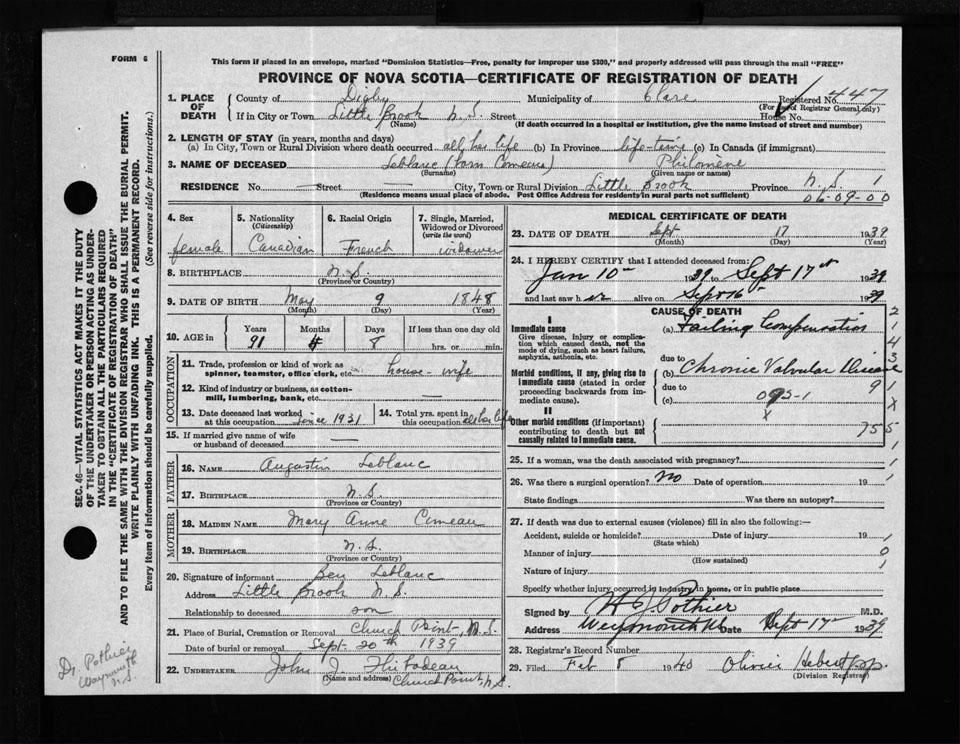 FORM 6
This form if placed in an envelope, marked "Dominion Statistics—Free, penalty for improper use $300," and properly addressed will pass through the mail "FREE"
PROVINCE OF NOVA SCOTIA—CERTIFICATE OF REGISTRATION OF DEATH
1. PLACE OF DEATH
County of Digby Municipality of Clare Registered No. 447
(For use of Registrar General only)
If in City or Town Little Brook N.S. Street House No.
(Name) (If death occurred in a hospital or institution, give the name instead of street and number)
2. LENGTH OF STAY (in years, months and days)
(a) In City, Town or Rural Division where death occurred all her life (b) In Province life-time (c) In Canada (if immigrant)
3. NAME OF DECEASED Leblanc (born Comeau) Philomène
(Surname) (Given name or names)
RESIDENCE No. — Street — City, Town or Rural Division Little Brook Province N.S. 1
(Residence means usual place of abode. Post Office Address for residents in rural parts not sufficient) 06-09-00
4. Sex female
5. Nationality (Citizenship) Canadian
6. Racial Origin French
7. Single, Married, Widowed or Divorced (write the word) widower
8. BIRTHPLACE N.S.
(Province or Country)
9. DATE OF BIRTH May 9 1848
(Month) (Day) (Year)
10. AGE in Years Months Days If less than one day old
91 4 8 hrs. or min.
OCCUPATION
11. Trade, profession or kind of work as spinner, teamster, office clerk, etc. house-wife
12. Kind of industry or business, as cotton-mill, lumbering, bank, etc. —
13. Date deceased last worked at this occupation since 1931
14. Total yrs. spent in this occupation all her life
15. If married give name of wife or husband of deceased —
FATHER
16. NAME Augustin Leblanc
17. BIRTHPLACE N.S.
(Province or Country)
MOTHER
18. MAIDEN NAME Mary Anne Comeau
19. BIRTHPLACE N.S.
(Province or Country)
20. Signature of informant Ben Leblanc
Address Little Brook N.S.
Relationship to deceased son
21. Place of Burial, Cremation or Removal Church Point, N.S.
Date of burial or removal Sept. 20th 1939
22. UNDERTAKER John J. Thibodeau
(Name and address) Church Point, N.S.
MEDICAL CERTIFICATE OF DEATH
23. DATE OF DEATH Sept 17 1939
(Month) (Day) (Year)
24. I HEREBY CERTIFY that I attended deceased from:
Jan 10th 1939 to Sept 17th 1939
and last saw h er alive on Sept 16th 1939
CAUSE OF DEATH
I
Immediate cause
Give disease, injury or complication which caused death, not the mode of dying, such as heart failure, asphyxia, asthenia, etc.
(a) Failing Compensation
due to
Morbid conditions, if any, giving rise to immediate cause (stated in order proceeding backwards from immediate cause)
(b) Chronic Valvular Disease
due to
(c) 095-1
II
Other morbid conditions (if important) contributing to death but not causally related to immediate cause.
25. If a woman, was the death associated with pregnancy?
26. Was there a surgical operation? No Date of operation 19
State findings Was there an autopsy?
27. If death was due to external causes (violence) fill in also the following:—
Accident, suicide or homicide? Date of injury 19
(State which)
Manner of injury
(How sustained)
Nature of injury
Specify whether injury occurred in industry, in home, or in public place
Signed by Pothier M.D.
Address Weymouth NS Date Sept 17th 1939
28. Registrar's Record Number
29. Filed Feb 8 1940 Olivier Hebert pp.
(Division Registrar)
SEC. 46—VITAL STATISTICS ACT MAKES IT THE DUTY
OF THE UNDERTAKER OR PERSON ACTING AS UNDERTAKER TO OBTAIN ALL THE PARTICULARS REQUIRED
IN THE "CERTIFICATE OF REGISTRATION OF DEATH"
AND TO FILE THE SAME WITH THE DIVISION REGISTRAR WHO SHALL ISSUE THE BURIAL PERMIT.
WRITE PLAINLY WITH UNFADING INK. THIS IS A PERMANENT RECORD.
Every item of information should be carefully supplied. (See reverse side for instructions.)
Dr. Pothier
Waymouth
N.S.